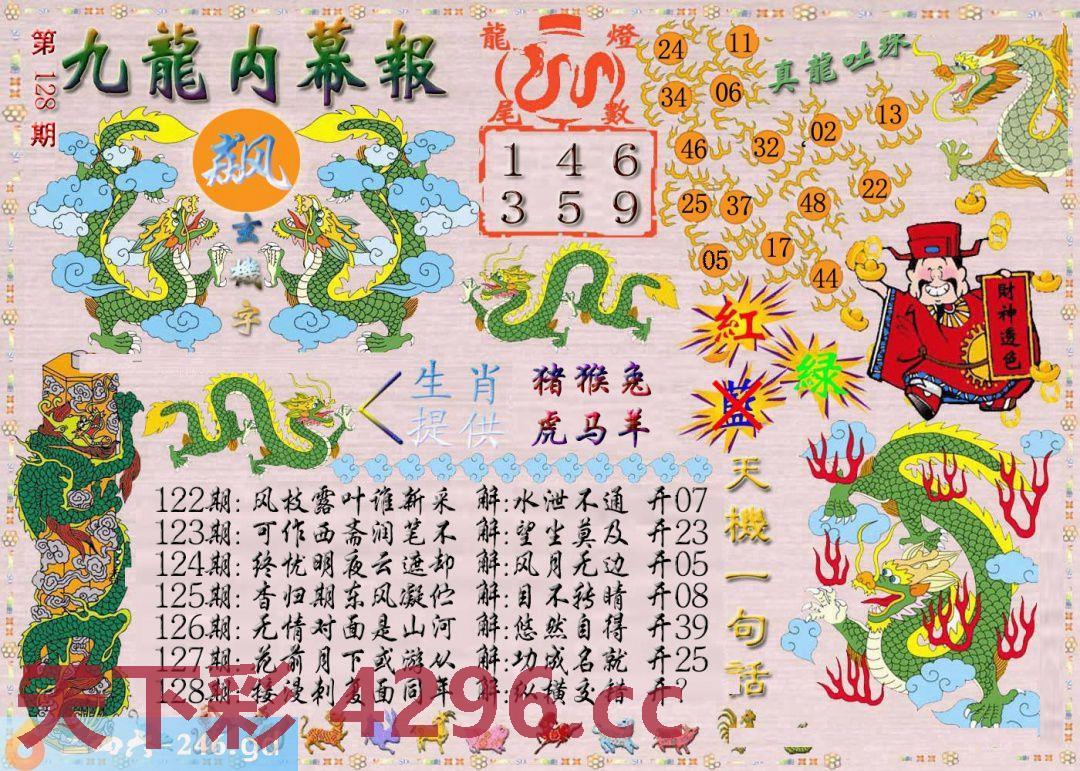 第128期
九龍内幕報
飙
玄機字
龍燈
尾數
1 4 6
3 5 9
真龍吐珠
24 11
34 06
46 32 02 13
25 37 48 22
05 17 44
紅
蓝
綠
財神透色
生肖
提供
猪猴兔
虎马羊
122期:风枝露叶谁新采 解:水泄不通 开07
123期:可作西斋润笔不 解:望尘莫及 开23
124期:终忧明夜云遮却 解:风月无边 开05
125期:杳归期东风凝伫 解:目不转睛 开08
126期:无情对面是山河 解:悠然自得 开39
127期:花前月下或游从 解:功成名就 开25
128期:接漫刺复面同年 解:纵横交错 开?
天機一句話
天下彩4296.cc
246.gd